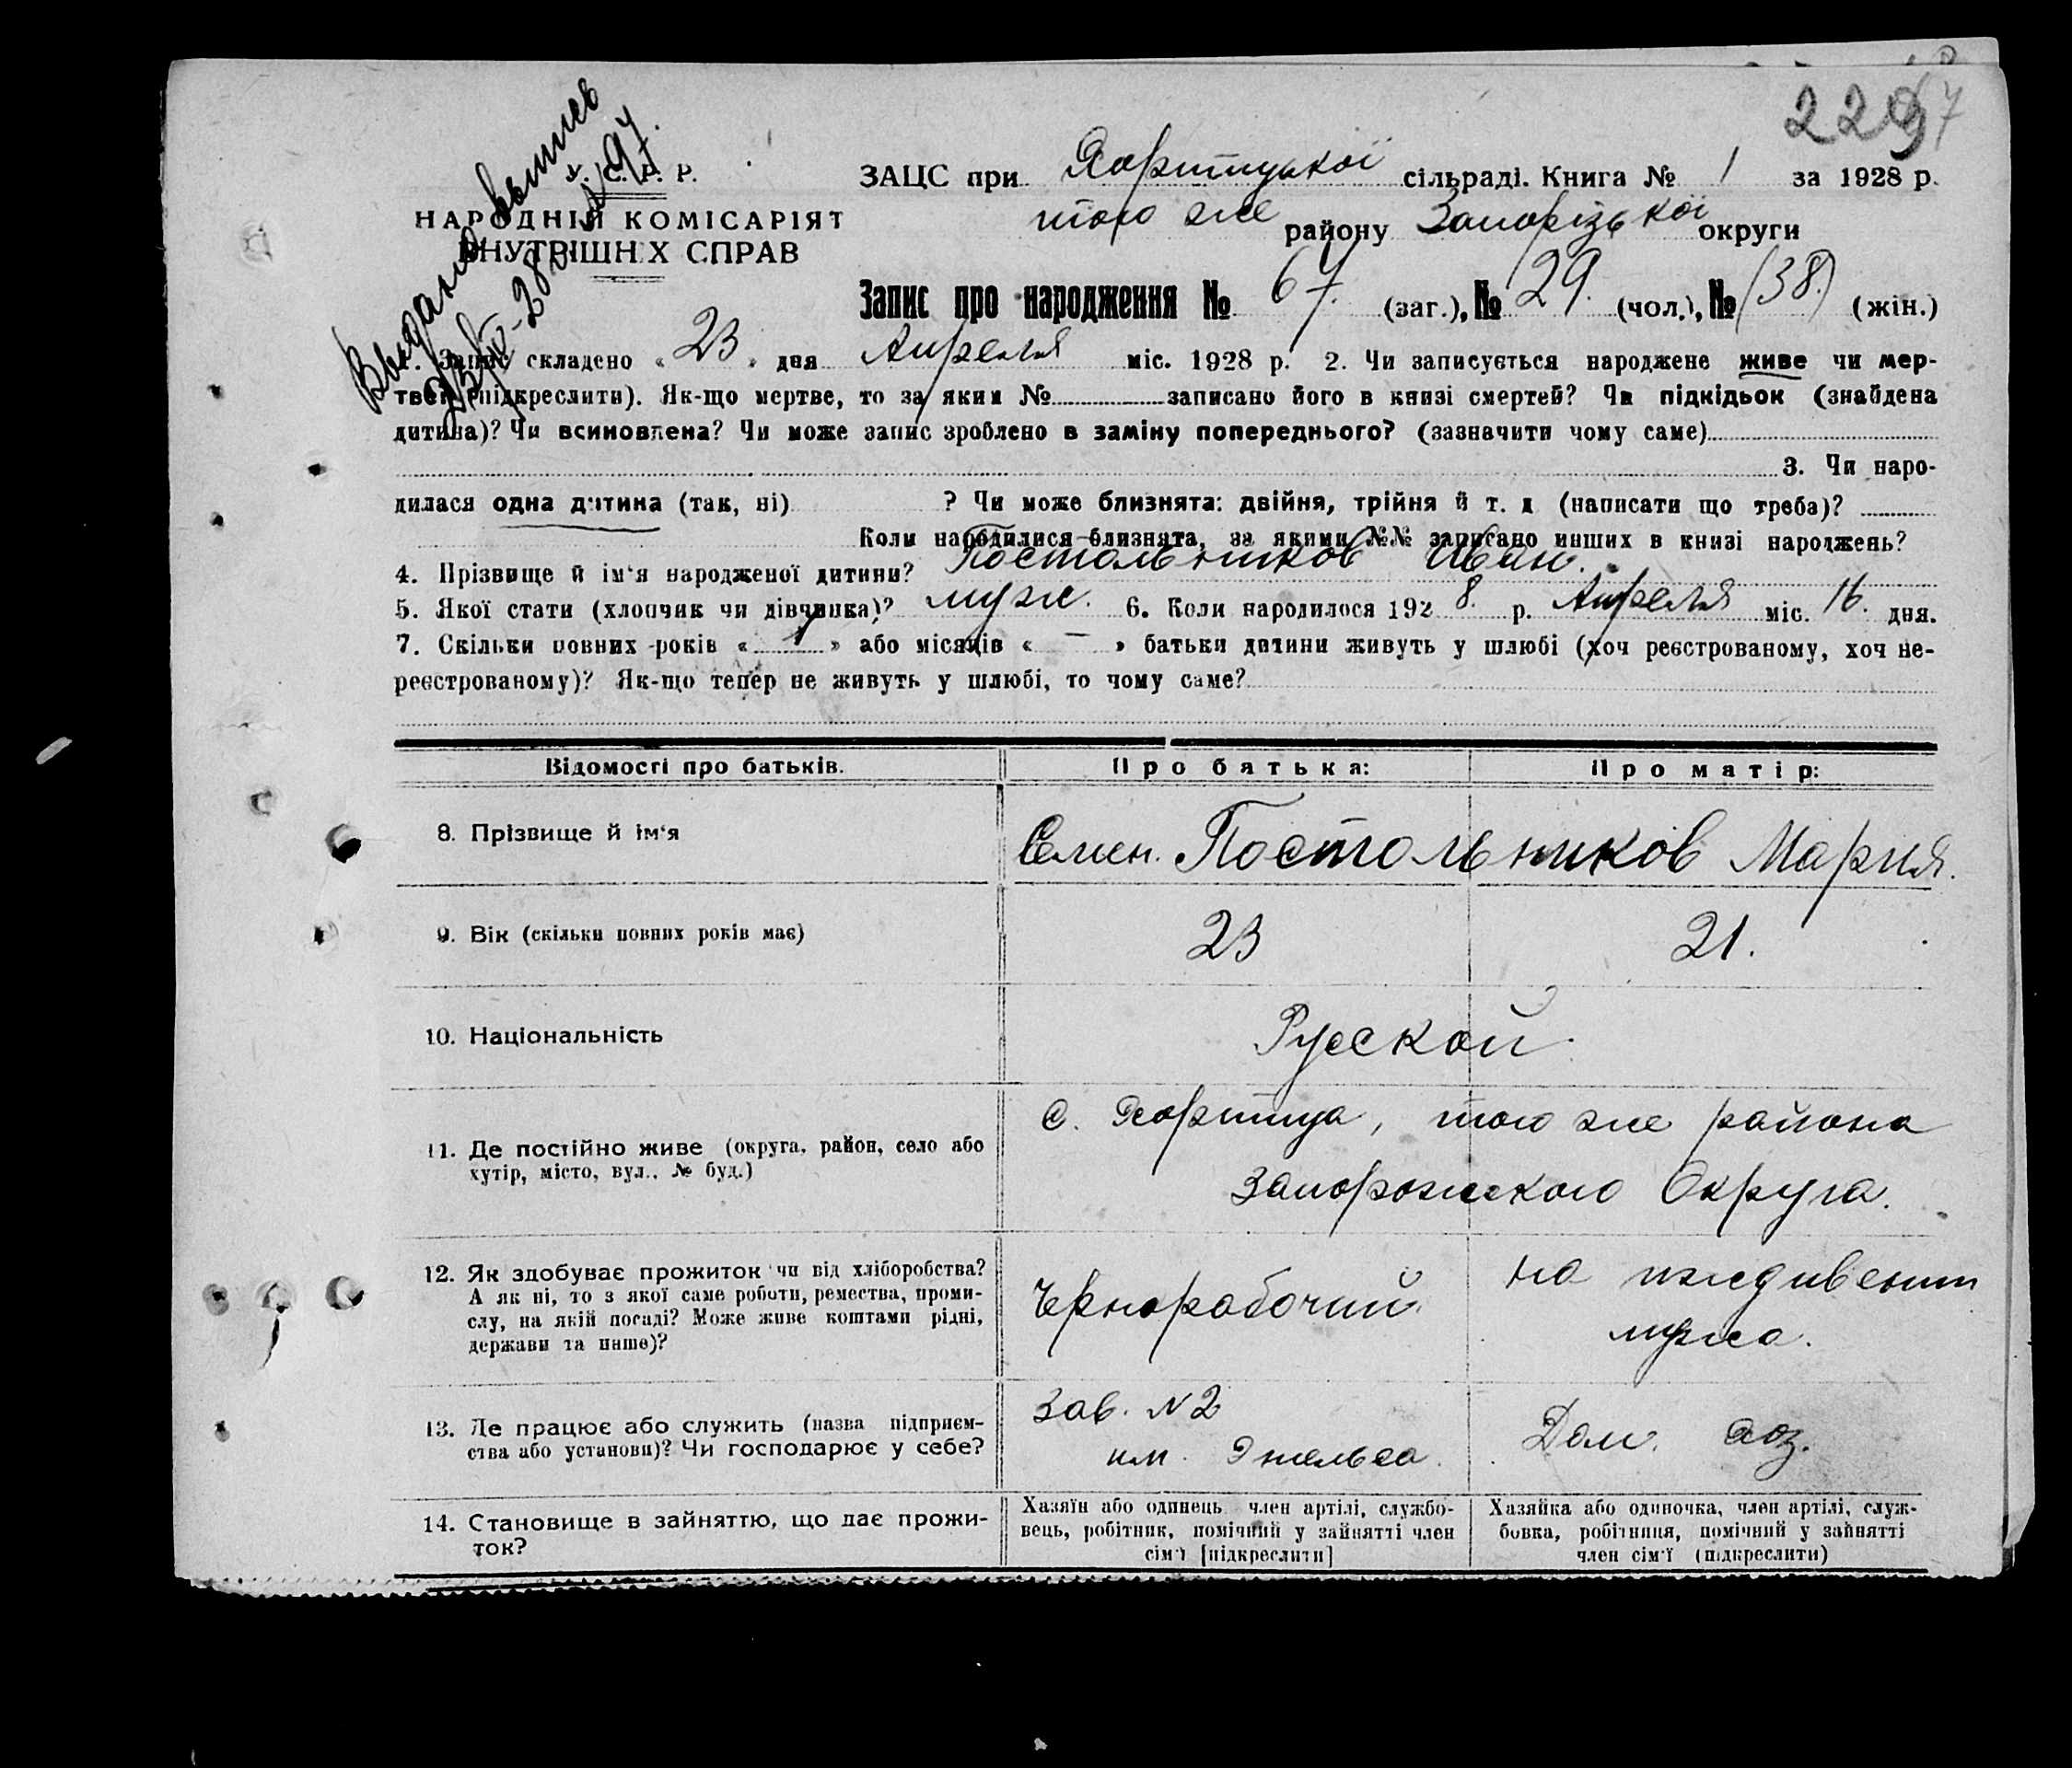 2297
У. С. Р. Р.
НАРОДНІЙ КОМІСАРІЯТ
ВНУТРІШНІХ СПРАВ
Выдана выпись
23/IV-28 № 97.
ЗАЦС при Хортицької сільраді. Книга № 1 за 1928 р.
того же району Запорізької округи
Запис про народження № 67. (заг.), № 29. (чол.), № (38.) (жін.)
1. Запис складено « 23 » дня Апреля міс. 1928 р. 2. Чи записується народжене живе чи мер-
тве (підкреслити). Як-що мертве, то за яким № записано його в книзі смертей? Чи підкідьок (знайдена
дитина)? Чи всиновлена? Чи може запис зроблено в заміну попереднього? (зазначити чому саме)
3. Чи наро-
дилася одна дитина (так, ні) ? Чи може близнята: двійня, трійня й т. д (написати що треба)?
Коли народилися близнята, за якими №№ записано инших в книзі народжень?
4. Прізвище й ім‘я народженої дитини? Постольников Иван.
5. Якої стати (хлопчик чи дівчинка)? муж. 6. Коли народилося 1928. р. Апреля міс. 16. дня.
7. Скільки повних років « 1 » або місяців « — » батьки дитини живуть у шлюбі (хоч реєстрованому, хоч не-
реєстрованому)? Як-що тепер не живуть у шлюбі, то чому саме?
Відомості про батьків. Про батька: Про матір:
8. Прізвище й ім‘я Семен. Постольников Мария.
9. Вік (скільки повних років має) 23 21.
10. Національність Русской.
11. Де постійно живе (округа, район, село або
хутір, місто, вул., № буд.)
с. Хортица, того же района
Запорожского Округа.
12. Як здобуває прожиток чи від хліборобства?
А як ні, то з якої саме роботи, ремества, проми-
слу, на якій посаді? Може живе коштами рідні,
держави та инше)?
Чернорабочий
на иждивении
мужа.
13. Де працює або служить (назва підприєм-
ства або установи)? Чи господарює у себе?
Зав. №2
им. Энгельса.
Дом. хоз.
14. Становище в зайняттю, що дає прожи-
ток?
Хазяїн або одинець член артілі, службо-
вець, робітник, помічний у зайнятті член
сім‘ї [підкреслити]
Хазяйка або одиночка, член артілі, служ-
бовка, робітниця, помічний у зайнятті
член сім‘ї (підкреслити)